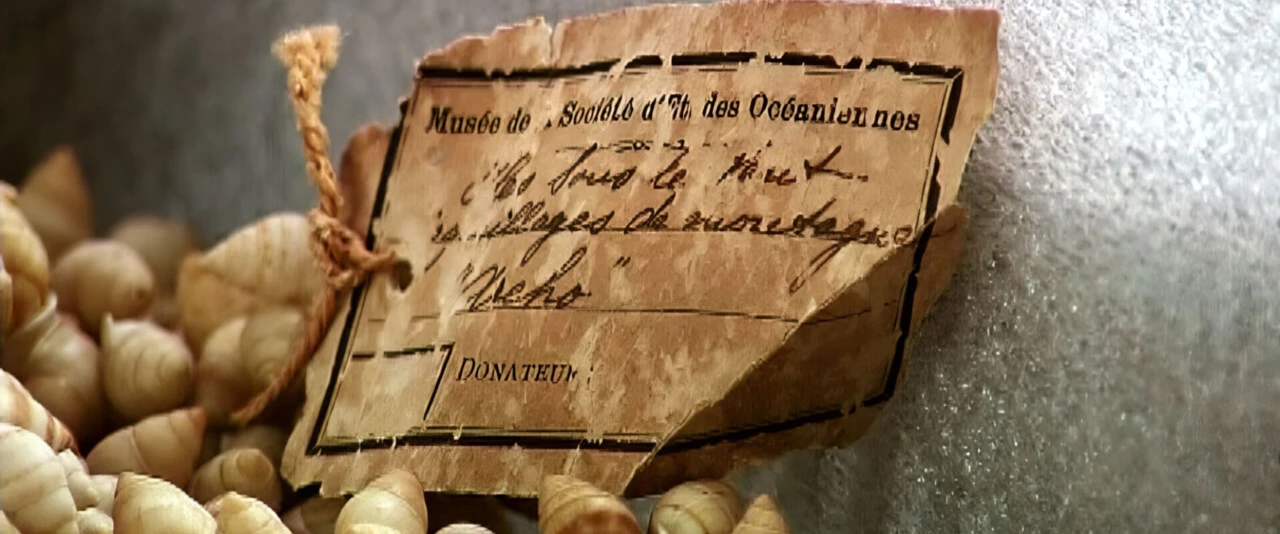 Musée de Société d'Et. des Océaniennes
Iles Sous le Vent
illages de montagne
DONATEUR: